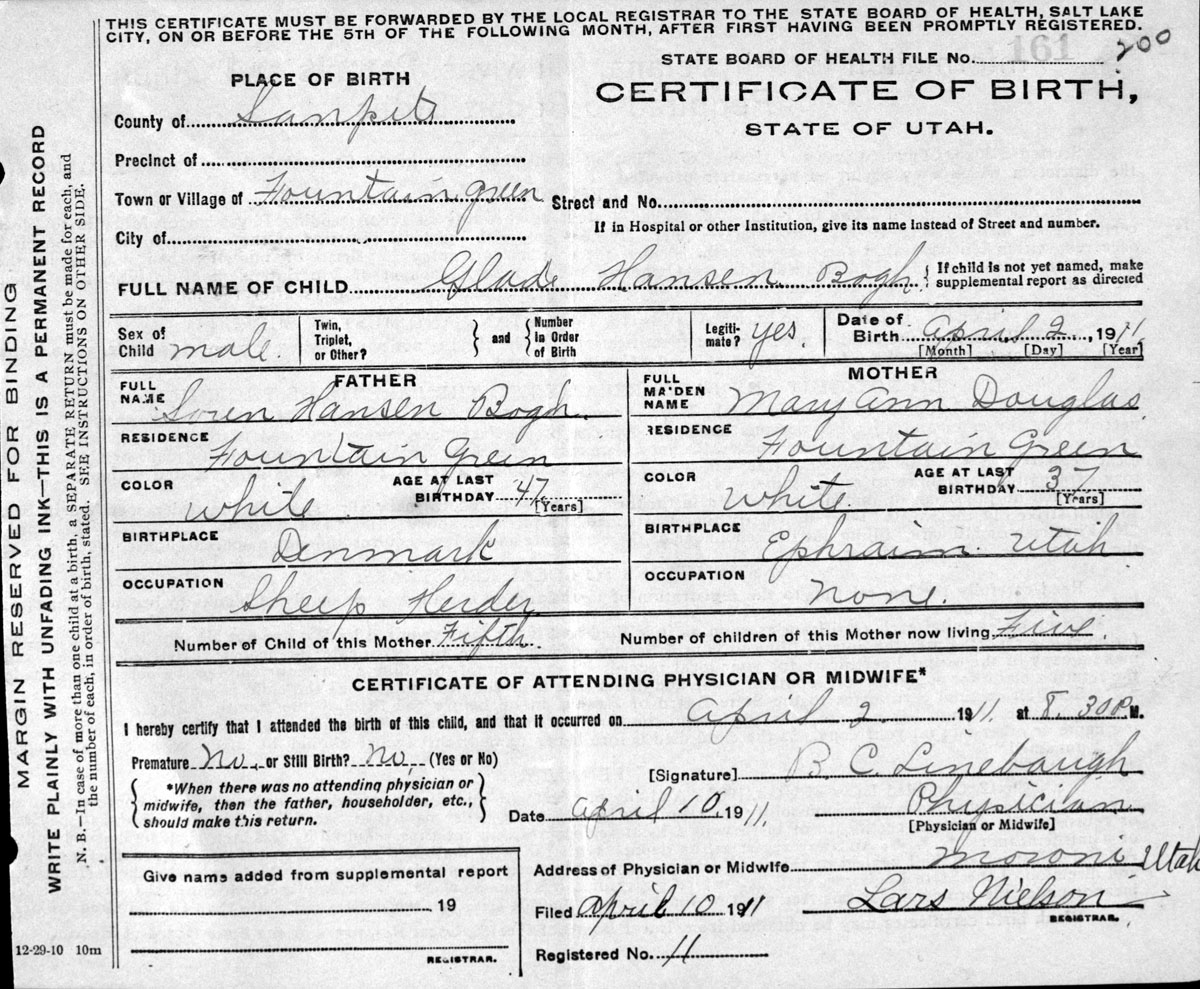 THIS CERTIFICATE MUST BE FORWARDED BY THE LOCAL REGISTRAR TO THE STATE BOARD OF HEALTH, SALT LAKE
CITY, ON OR BEFORE THE 5TH OF THE FOLLOWING MONTH, AFTER FIRST HAVING BEEN PROMPTLY REGISTERED.
MARGIN RESERVED FOR BINDING
WRITE PLAINLY WITH UNFADING INK—THIS IS A PERMANENT RECORD
N. B.—In case of more than one child at a birth, a SEPARATE RETURN must be made for each, and
the number of each, in order of birth, stated. SEE INSTRUCTIONS ON OTHER SIDE.
161
STATE BOARD OF HEALTH FILE No. 200
PLACE OF BIRTH
CERTIFICATE OF BIRTH,
STATE OF UTAH.
County of Sanpete
Precinct of
Town or Village of Fountain Green Street and No.
City of If in Hospital or other Institution, give its name instead of Street and number.
FULL NAME OF CHILD Glade Hansen Bogh. { If child is not yet named, make
supplemental report as directed
Sex of Child male. Twin, Triplet, or Other? } and { Number in Order of Birth Legiti-mate? yes. Date of Birth April 2, 1911
[Month] [Day] [Year]
FATHER MOTHER
FULL NAME Soren Hansen Bogh. FULL MAIDEN NAME Mary Ann Douglas
RESIDENCE Fountain Green RESIDENCE Fountain Green
COLOR White AGE AT LAST BIRTHDAY 47 [Years] COLOR White AGE AT LAST BIRTHDAY 37 [Years]
BIRTHPLACE Denmark BIRTHPLACE Ephraim. Utah
OCCUPATION Sheep Herder OCCUPATION None.
Number of Child of this Mother Fifth. Number of children of this Mother now living Five.
CERTIFICATE OF ATTENDING PHYSICIAN OR MIDWIFE*
I hereby certify that I attended the birth of this child, and that it occurred on April 2 1911. at 8.30 P. M.
Premature No. or Still Birth? No, (Yes or No)
[Signature] B. C. Linebaugh
*When there was no attending physician or
midwife, then the father, householder, etc.,
should make this return.
Date April 10, 1911. Physician
[Physician or Midwife]
Give name added from supplemental report
19
REGISTRAR.
Address of Physician or Midwife Moroni Utah
Filed April 10 1911 Lars Nielson
REGISTRAR.
Registered No. 11
12-29-10 10m